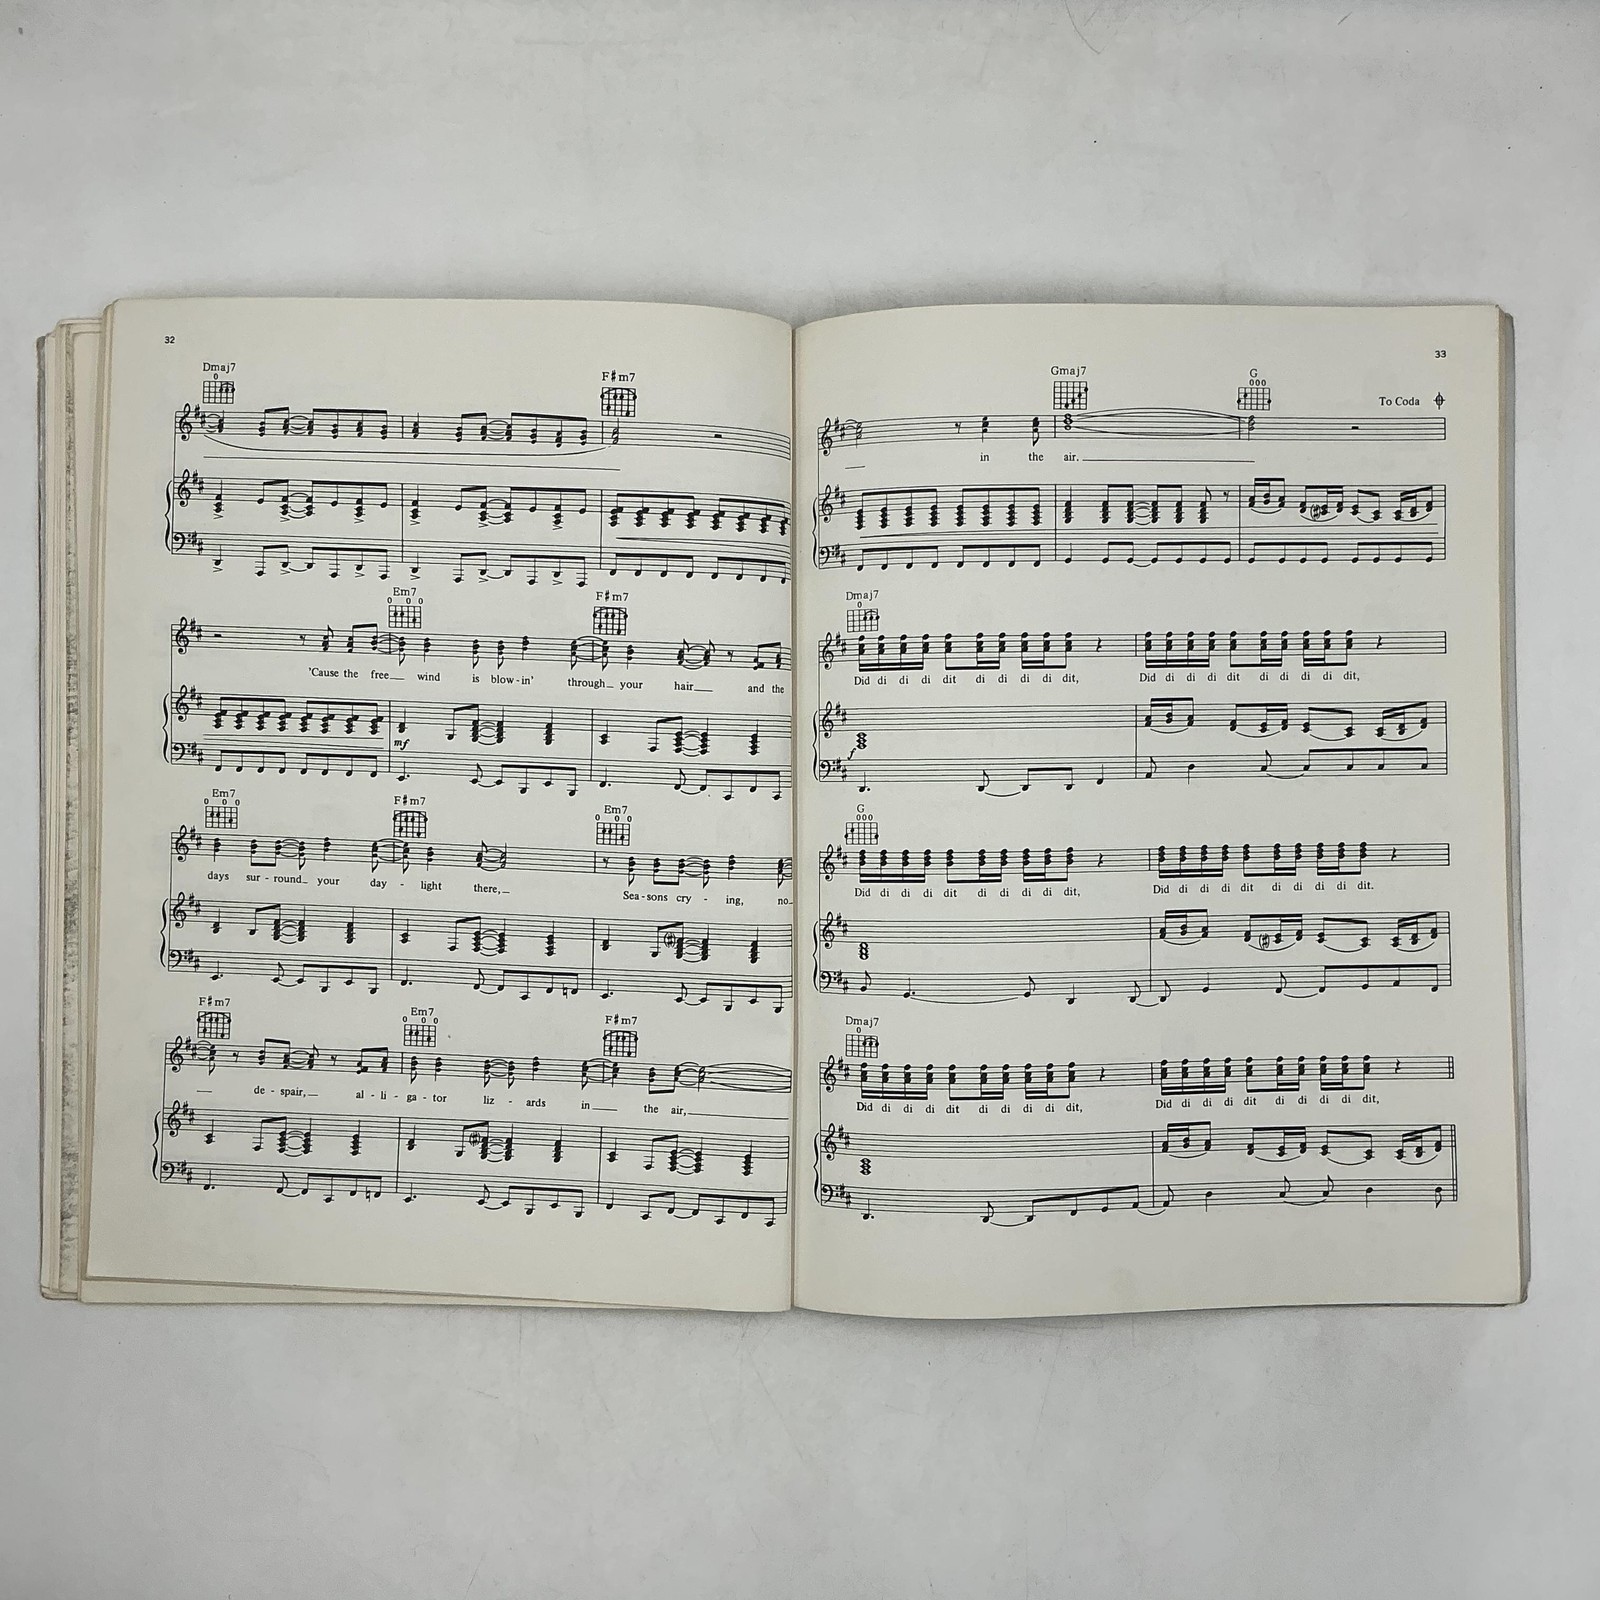 32
Dmaj7 F♯m7
Em7 F♯m7
'Cause the free__ wind is blow-in' through_ your hair__ and the
mf
Em7 F♯m7 Em7
days sur-round_ your day - light there,_ Sea-sons cry - ing, no_
F♯m7 Em7 F♯m7
__ de-spair,__ al-li-ga-tor liz - ards in__ the air,__
33
Gmaj7 G
To Coda
in the air.__
Dmaj7
Did di di di dit di di di di dit, Did di di di dit di di di di dit,
f
G
Did di di di dit di di di di dit, Did di di di dit di di di di dit.
Dmaj7
Did di di di dit di di di di dit, Did di di di dit di di di di dit,